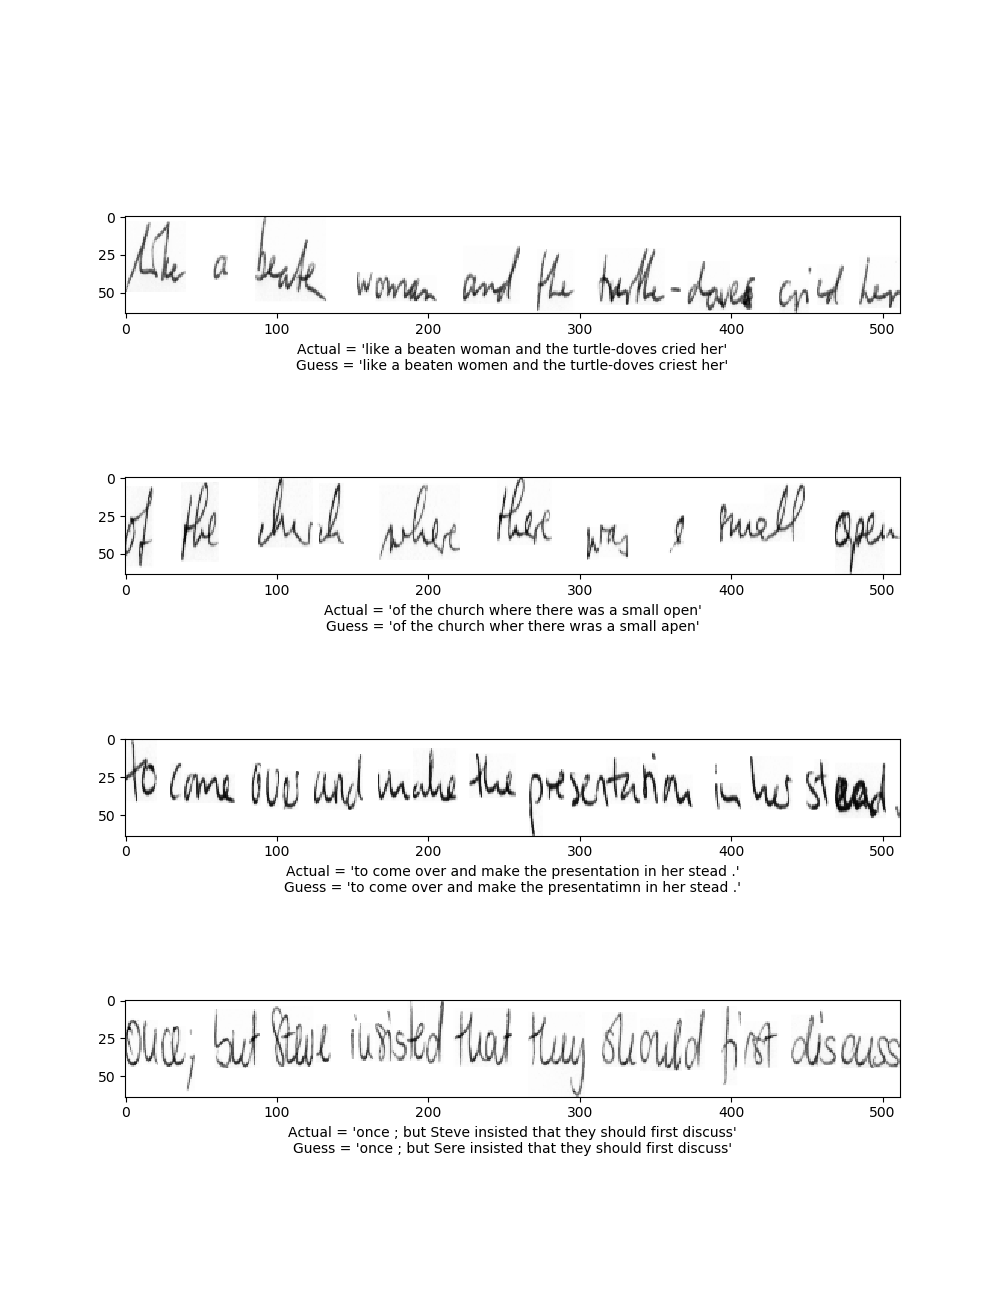 0
25
50
like a beate woman and the turtle-doves cried her
0 100 200 300 400 500
Actual = 'like a beaten woman and the turtle-doves cried her'
Guess = 'like a beaten women and the turtle-doves criest her'
0
25
50
of the church where there was a small open
0 100 200 300 400 500
Actual = 'of the church where there was a small open'
Guess = 'of the church wher there wras a small apen'
0
25
50
to come over and make the presentation in her stead .
0 100 200 300 400 500
Actual = 'to come over and make the presentation in her stead .'
Guess = 'to come over and make the presentatimn in her stead .'
0
25
50
once ; but Steve insisted that they should first discuss
0 100 200 300 400 500
Actual = 'once ; but Steve insisted that they should first discuss'
Guess = 'once ; but Sere insisted that they should first discuss'